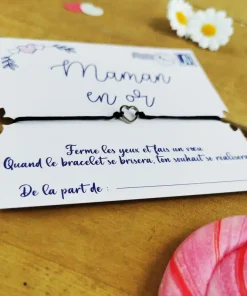 Maman
en or
Ferme les yeux et fais un vœu
Quand le bracelet se brisera, ton souhait se réalisera
De la part de :